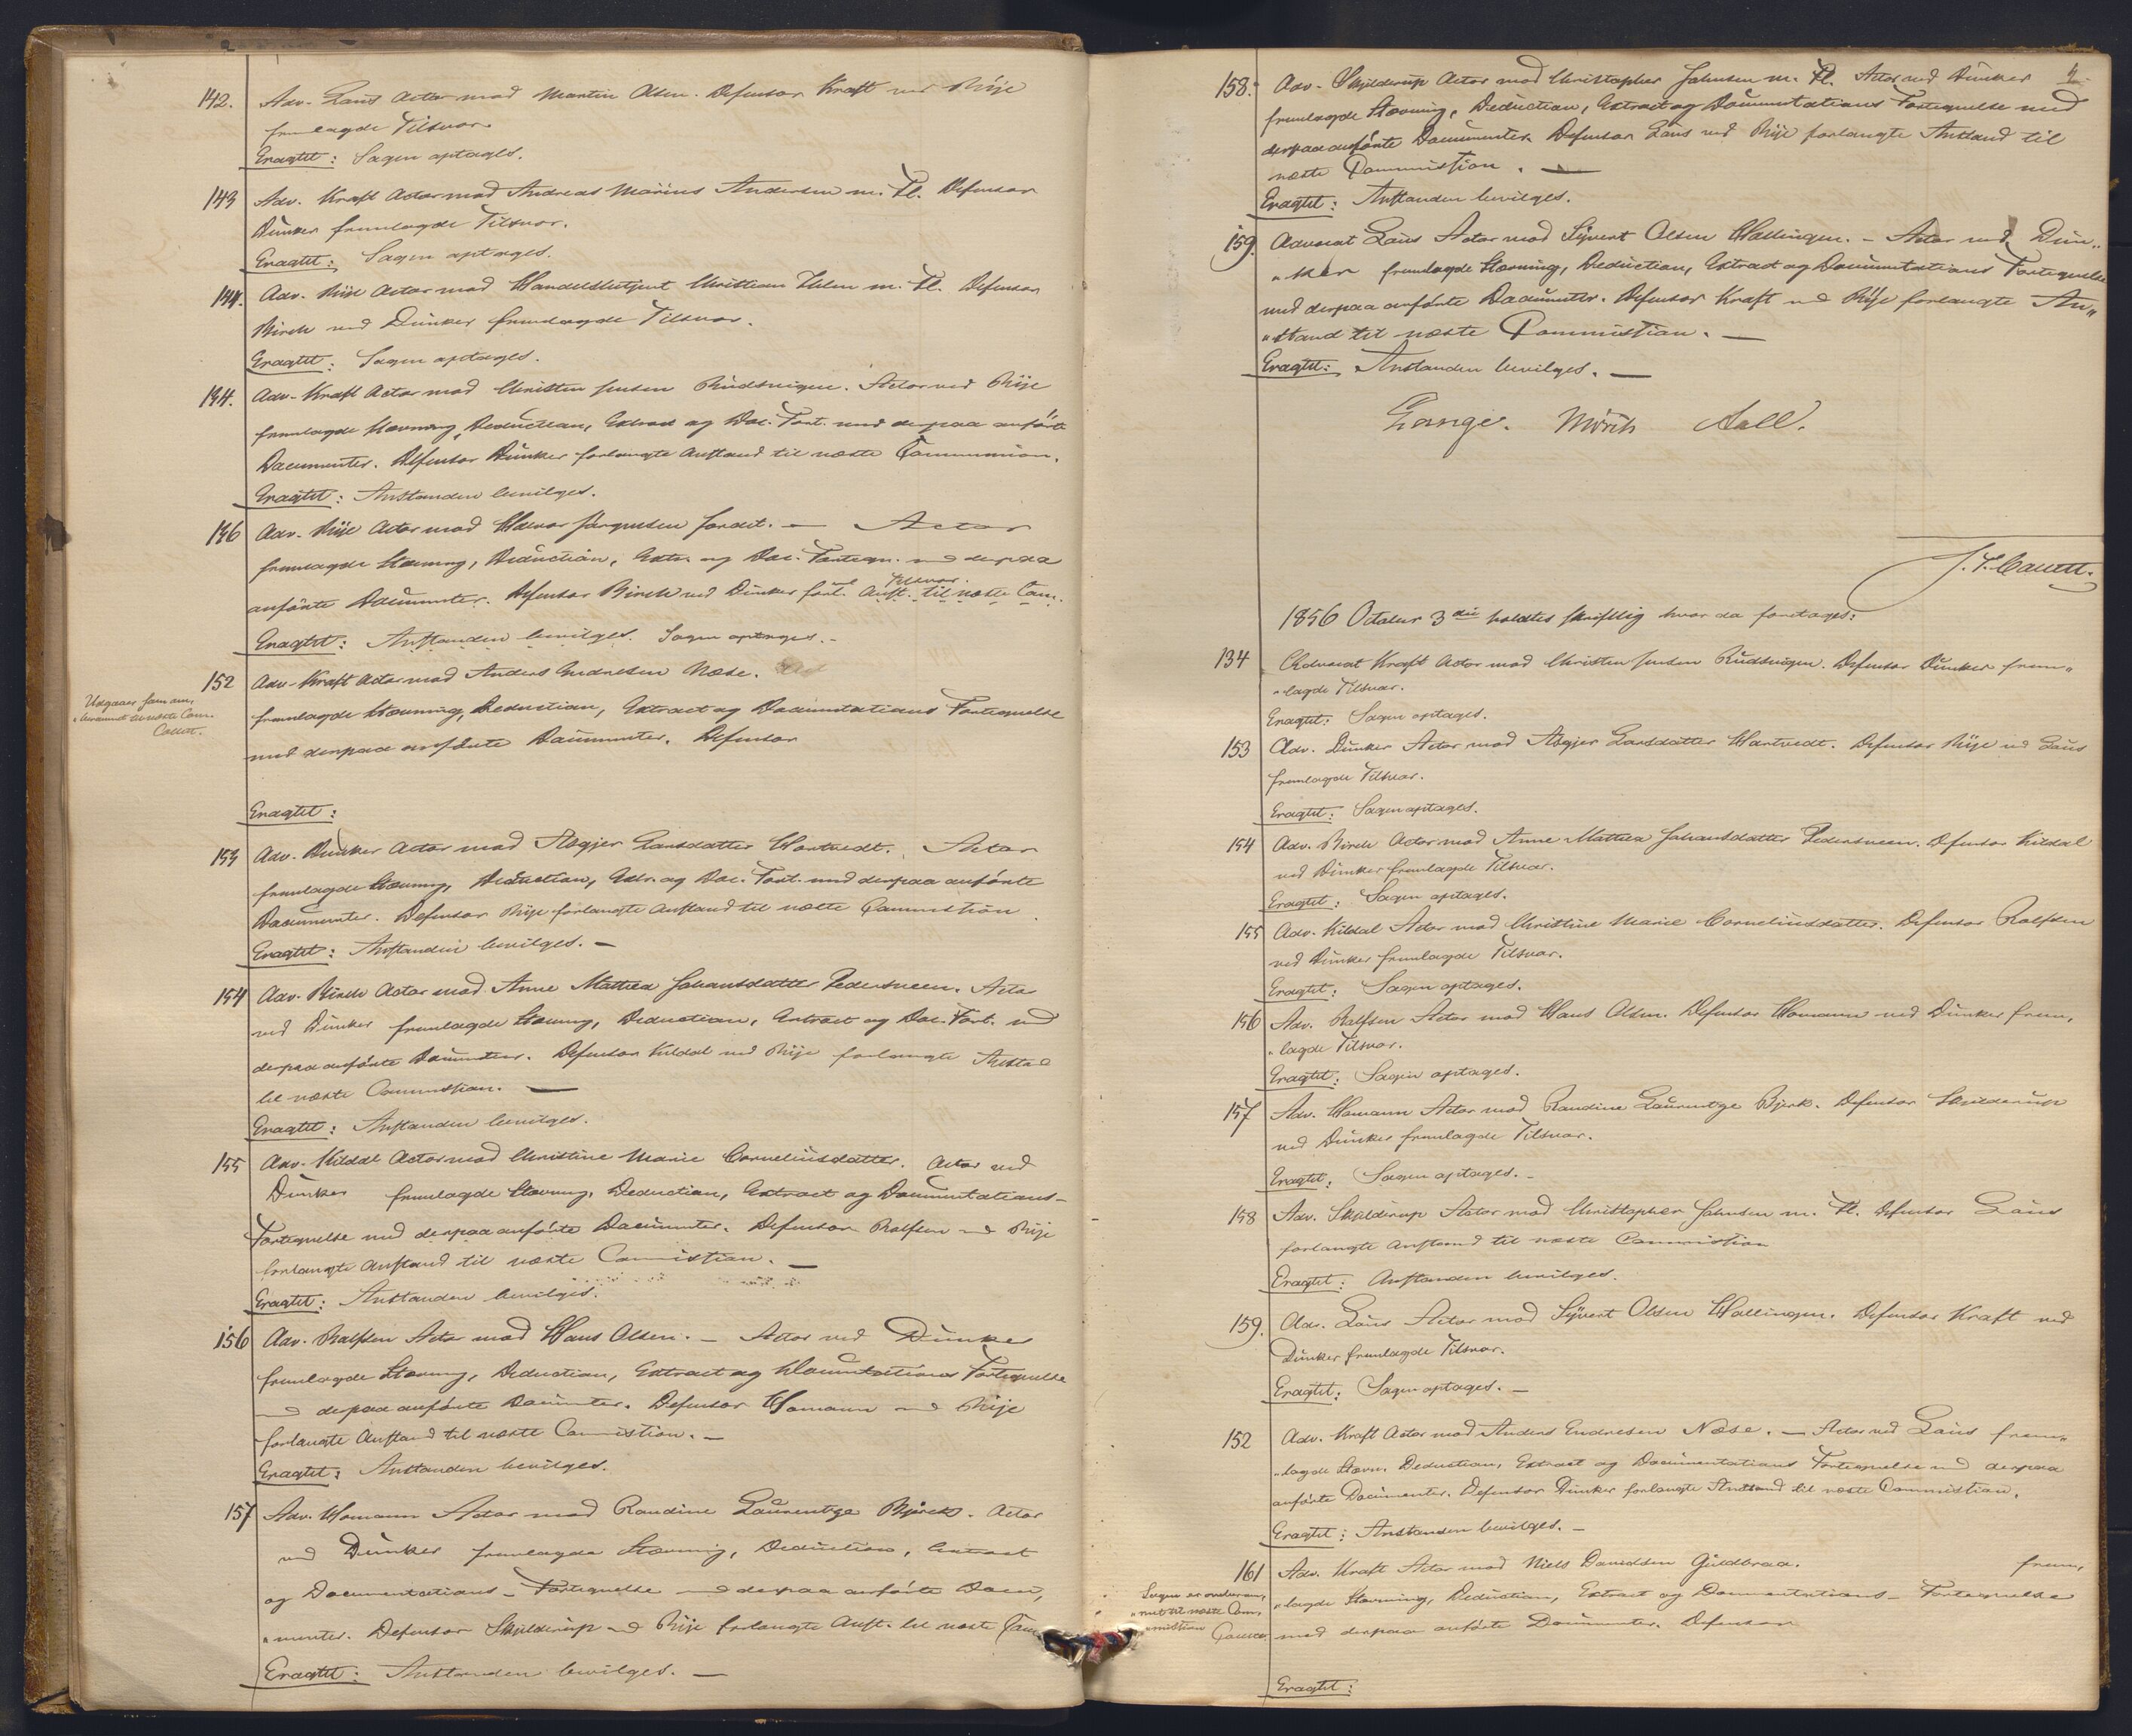 142. Adv. Laus Actor mod Martin Olsen. Defensor Kraft ved Rije
fremlagde Tilsvar.
Eragtet: Sagen optages.
143 Adv. Kraft Actor mod Andreas Marius Andersen m. Fl. Defensor
Dunker fremlagde Tilsvar.
Eragtet: Sagen optages.
144. Adv. Rije Actor mod Handelsbetjent Christian Holm m. Fl. Defensor
Birch ved Dunker fremlagde Tilsvar.
Eragtet: Sagen optages.
134. Adv. Kraft Actor mod Christen Jensen Rudseigen. Actor ved Rije
fremlagde Stævning, Deduction, Extract og Doc. Fort. med derpaa anførte
Documenter. Defensor Dunker forlangte Anstand til næste Commission.
Eragtet: Anstanden bevilges.
146 Adv. Rije Actor mod Halvor Jørgensen Jordet. — Actor
fremlagde Stævning, Deduction, Extr. og Doc. Fortegn. med derpaa
anførte Documenter. Defensor Birch ved Dunker forl. Anst. til næste Com.
Tilsvar.
Eragtet: Anstanden bevilges. Sagen optages. -
152 Adv. Kraft Actor mod Anders Endresen Næse.
Udgaaer som
til næste Com.
fremlagde Stævning, Deduction, Extract og Documentations Fortegnelse
med derpaa anførte Documenter. Defensor
Eragtet:
153 Adv. Dunker Actor mod Aegjer Larsdatter Hartvedt. Actor
fremlagde Stævning, Deduction, Extr. og Doc. Fort. med derpaa anførte
Documenter. Defensor Rije forlangte Anstand til næste Commission.
Eragtet: Anstanden bevilges. —
154 Adv. Birch Actor mod Anne Mathea Johansdatter Pederseen. Actor
ved Dunker fremlagde Stævning, Deduction, Extract og Doc. Fort. med
derpaa anførte Documenter. Defensor Kildal ved Rije forlangte Anstand
til næste Commission. —
Eragtet: Anstanden bevilges.
155 Adv. Kildal Actor mod Christine Marie Corneliusdatter. Actor ved
Dunker fremlagde Stævning, Deduction, Extract og Documentations-
Fortegnelse med derpaa anførte Documenter. Defensor Rolfsen ved Rije
forlangte Anstand til næste Commission. —
Eragtet: Anstanden bevilges.
156 Adv. Rolfsen Actor mod Hans Olsen. — Actor ved Dunker
fremlagde Stævning, Deduction, Extract og Documentations Fortegnelse
med derpaa anførte Documenter. Defensor Homann ved Rije
forlangte Anstand til næste Commission. —
Eragtet: Anstanden bevilges.
157 Adv. Homann Actor mod Randine Laurentze Bjerck. Actor
ved Dunker fremlagde Stævning, Deduction, Extract
og Documentations - Fortegnelse med derpaa anførte Docu„
„menter. Defensor Skjelderup ved Rije forlangte Anst. til næste Com
Eragtet: Anstanden bevilges. —
4.
158. Adv. Skjelderup Actor mod Christopher Johnsen m. Fl. Actor ved Dunker
fremlagde Stævning, Deduction, Extract og Documentations Fortegnelse med
derpaa anførte Documenter. Defensor Laus ved Rije forlangte Anstand til
næste Commission. —
Eragtet: Anstanden bevilges.
159. Advocat Laus Actor mod Syvert Olsen Hallingen. - Actor ved Dun„
„ker fremlagde Stævning, Deduction, Extract og Documentations Fortegnelse
med derpaa anførte Documenter. Defensor Kraft ved Rije forlangte An„
„stand til næste Commission. —
Eragtet: Anstanden bevilges. —
Lange. Mörch Aall.
1856 October 3die holdtes skriftlig hvor da foretages:
134 Advocat Kraft Actor mod Christen Jensen Rudseigen. Defensor Dunker frem„
„lagde Tilsvar.
Eragtet: Sagen optages.
153 Adv. Dunker Actor mod Aegjer Larsdatter Hartvedt. Defensor Rije ved Laus
fremlagde Tilsvar.
Eragtet: Sagen optages.
154 Adv. Birch Actor mod Anne Mathea Johansdatter Pederseen. Defensor Kildal
ved Dunker fremlagde Tilsvar.
Eragtet: Sagen optages.
155 Adv. Kildal Actor mod Christine Marie Corneliusdatter. Defensor Rolfsen
ved Dunker fremlagde Tilsvar.
Eragtet: Sagen optages.
156 Adv. Rolfsen Actor mod Hans Olsen. Defensor Homann ved Dunker frem„
„lagde Tilsvar.
Eragtet: Sagen optages.
157 Adv. Homann Actor mod Randine Laurentze Bjerk. Defensor Skjelderup
ved Dunker fremlagde Tilsvar.
Eragtet: Sagen optages. -
158 Adv. Skjelderup Actor mod Christopher Johnsen m. Fl. Defensor Laus
forlangte Anstand til næste Commission
Eragtet: Anstanden bevilges.
159. Adv. Laus Actor mod Syvert Olsen Hallingen. Defensor Kraft ved
Dunker fremlagde Tilsvar.
Eragtet: Sagen optages. —
152 Adv. Kraft Actor mod Anders Endresen Næse. — Actor ved Laus frem„
„lagde Stævn. Deduction, Extract og Documentations Fortegnelse med derpaa
anførte Documenter. Defensor Dunker forlangte Anstand til næste Commission.
Eragtet: Anstanden bevilges. —
161 Adv. Kraft Actor mod Niels Davidsen Guldbraa. frem„
Sagen er
til næste Com„
„mission
„lagde Stævning, Deduction, Extract og Documentations - Fortegnelse
med derpaa anførte Documenter. Defensor
Eragtet: